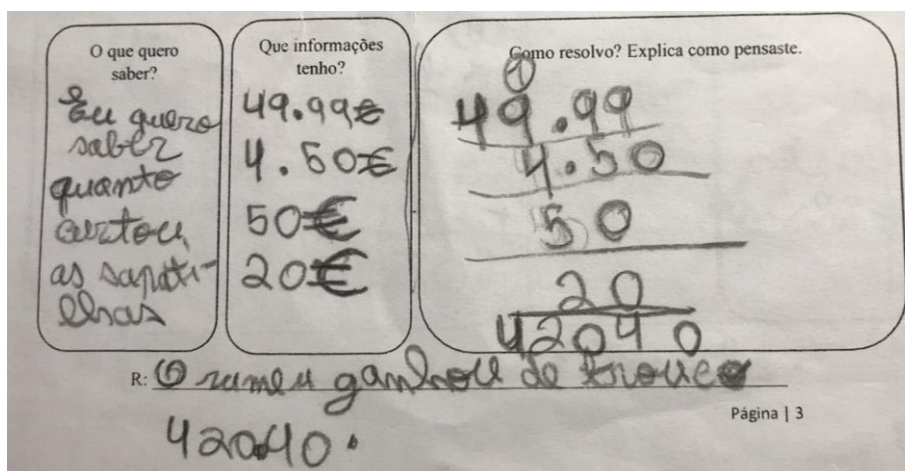 O que quero
saber?
Eu quero
saber
quanto
custou
as sapati-
lhas
Que informações
tenho?
49.99€
4.50€
50€
20€
Como resolvo? Explica como pensaste.
1
49.99
4.50
50
20
42040
R: O rumeu ganhou de trouco
420.40.
Página | 3